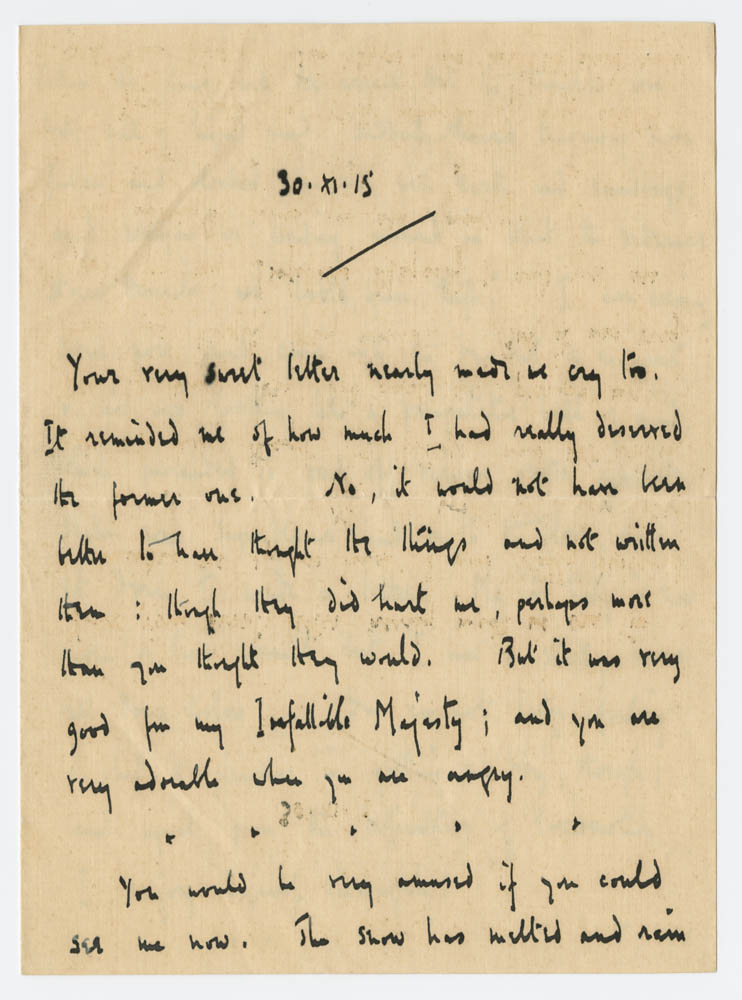 30.XI.15
Your very sweet letter nearly made me cry too.
It reminded me of how much I had really deserved
the former one. No, it would not have been
better to have thought the things and not written
them : though they did hurt me, perhaps more
than you thought they would. But it was very
good for my Infallible Majesty; and you are
very adorable when you are angry.
* * * * *
You would be very amused if you could
see me now. The snow has melted and rain